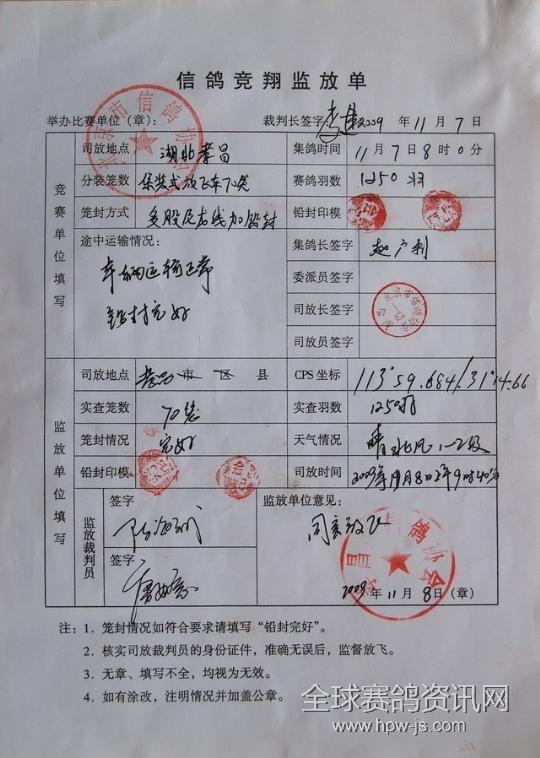 信鸽竞翔监放单
举办比赛单位（章）： 裁判长签字 2009 年 11 月 7 日
北京市信鸽协会
司放地点 湖北孝昌 集鸽时间 11月7日8时0分
分装笼数 集装式放飞车70笼 赛鸽羽数 1250羽
笼封方式 多股尼龙线加铅封 铅封印模
途中运输情况： 集鸽长签字 赵广利
车辆运输正常 委派员签字
铅封完好 司放长签字
司放员签字
竞赛单位填写
司放地点 孝昌市区县 CPS坐标 113°59.684/31°14.66
实查笼数 70笼 实查羽数 1250羽
笼封情况 完好 天气情况 晴北风1-2级
铅封印模 司放时间 2009年11月8日9时40分
监放单位填写
监放裁判员
签字 监放单位意见：
同意放飞
签字
2009年11月8日（章）
注：1．笼封情况如符合要求请填写“铅封完好”。
2．核实司放裁判员的身份证件，准确无误后，监督放飞。
3．无章、填写不全，均视为无效。
4．如有涂改，注明情况并加盖公章。
全球赛鸽资讯网
www.hpw-js.com